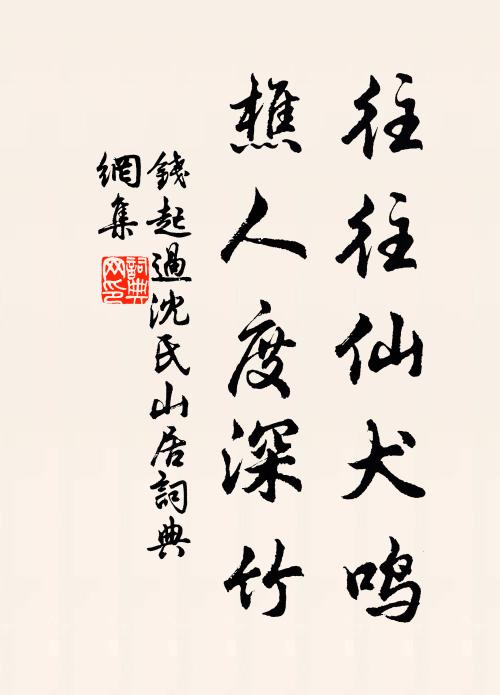 往往仙犬鸣
樵人度深竹
錢起過沈氏山居詞典
網集
詞典網印